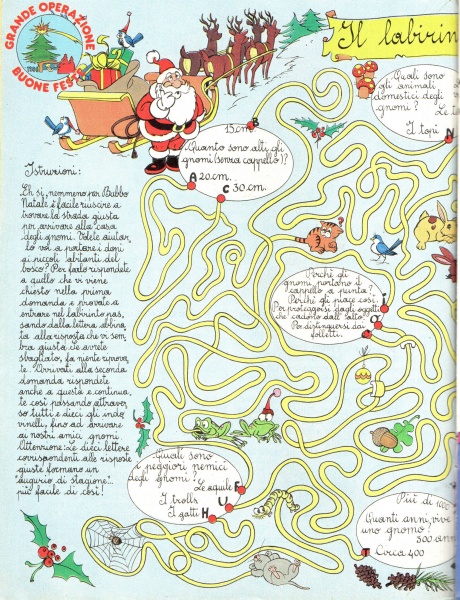 GRANDE OPERAZIONE
BUONE FESTE
Il labirin
Istruzioni:
Eh sì, nemmeno per Babbo
Natale è facile riuscire a
trovare la strada giusta
per arrivare alla casa
degli gnomi. Volete aiutar
lo voi a portare i doni
ai piccoli abitanti del
bosco? Per farlo rispondete
a quello che vi viene
chiesto nella prima
domanda e provate a
entrare nel labirinto pas,
sando dalla lettera abbina,
ta alla risposta che vi sem
bra giusta. Se avrete
sbagliato, fa niente, riprova,
te. Arrivati alla seconda
domanda rispondete
anche a questa e continua,
te così passando attraver,
so tutti e dieci gli indo
vinelli, fino ad arrivare
ai nostri amici gnomi.
Attenzione: Le dieci lettere
corrispondenti alle risposte
giuste formano un
"augurio di stagione"...
più facile di così!
15 cm. B
Quanto sono alti gli
gnomi (senza cappello)?
A 20 cm.
C 30 cm.
Quali sono
gli animali
domestici degli
gnomi?
Le
I topi N
Perché gli
gnomi portano il
cappello a punta?
Perché gli piace così. I
Per proteggersi dagli oggetti
che cadono dall'alto?
Per distinguersi dai
folletti.
Quali sono
i peggiori nemici
degli gnomi?
Le aquile F
I trolls U
I gatti H
Più di 1000
Quanti anni vive
uno gnomo?
500 ann
T Circa 400